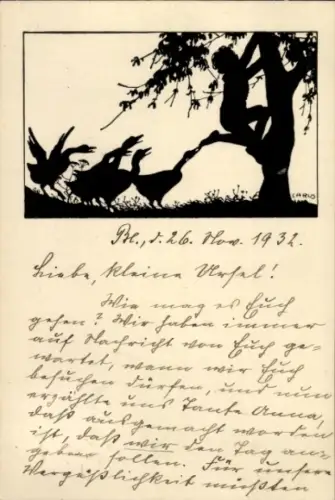 CARLO
Bl., d. 26. Nov. 1932.
Liebe, kleine Ursel!
Wie mag es Euch
gehen? Wir haben immer
auf Nachricht von Euch ge-
wartet, wann wir Euch
besuchen dürfen, und nun
erzählte uns Tante Anna,
daß ausgemacht worden
ist, daß wir den Tag an-
geben sollen. Für unsere
Vergeßlichkeit müßten